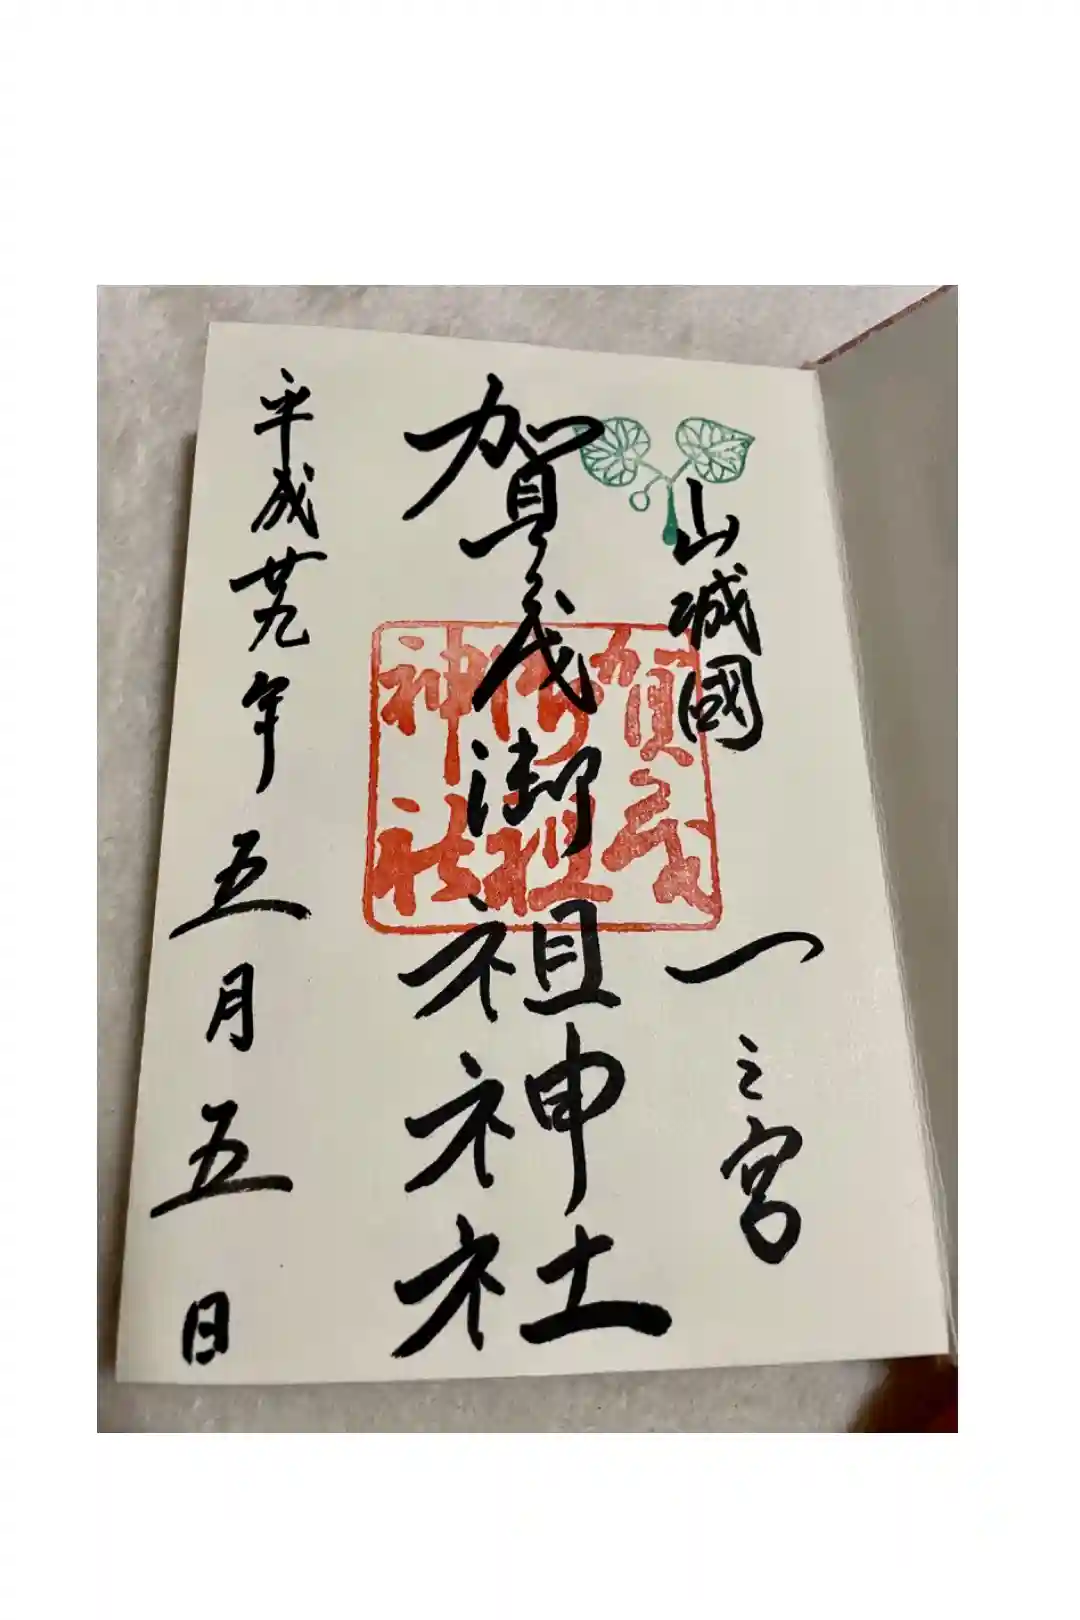 山城國 一之宮
賀茂御祖神社
賀茂
御祖
神社
平成廿九年五月五日